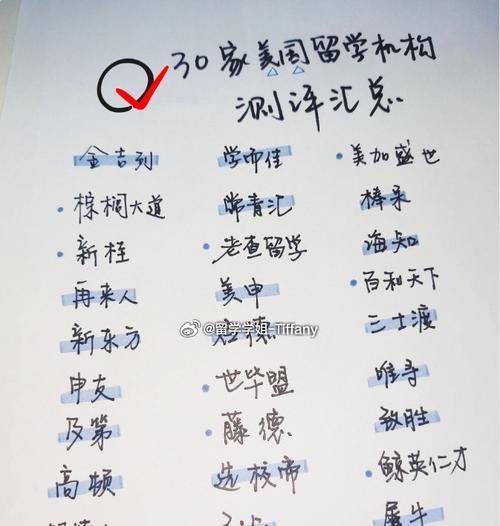 30家美国留学机构
测评汇总
金吉列 学而佳 ·美加盛世
·棕榈大道 常青汇 棒呆
·新桂 ·老查留学 海知
再来人 美申 ·百利天下
新东方 应德 三士渡
@留学学姐-Tiffany
申友 ·世毕盟 唯寻
及第 ·藤德 致胜
高顿 选校帝 ·鲸英仁才
犀牛